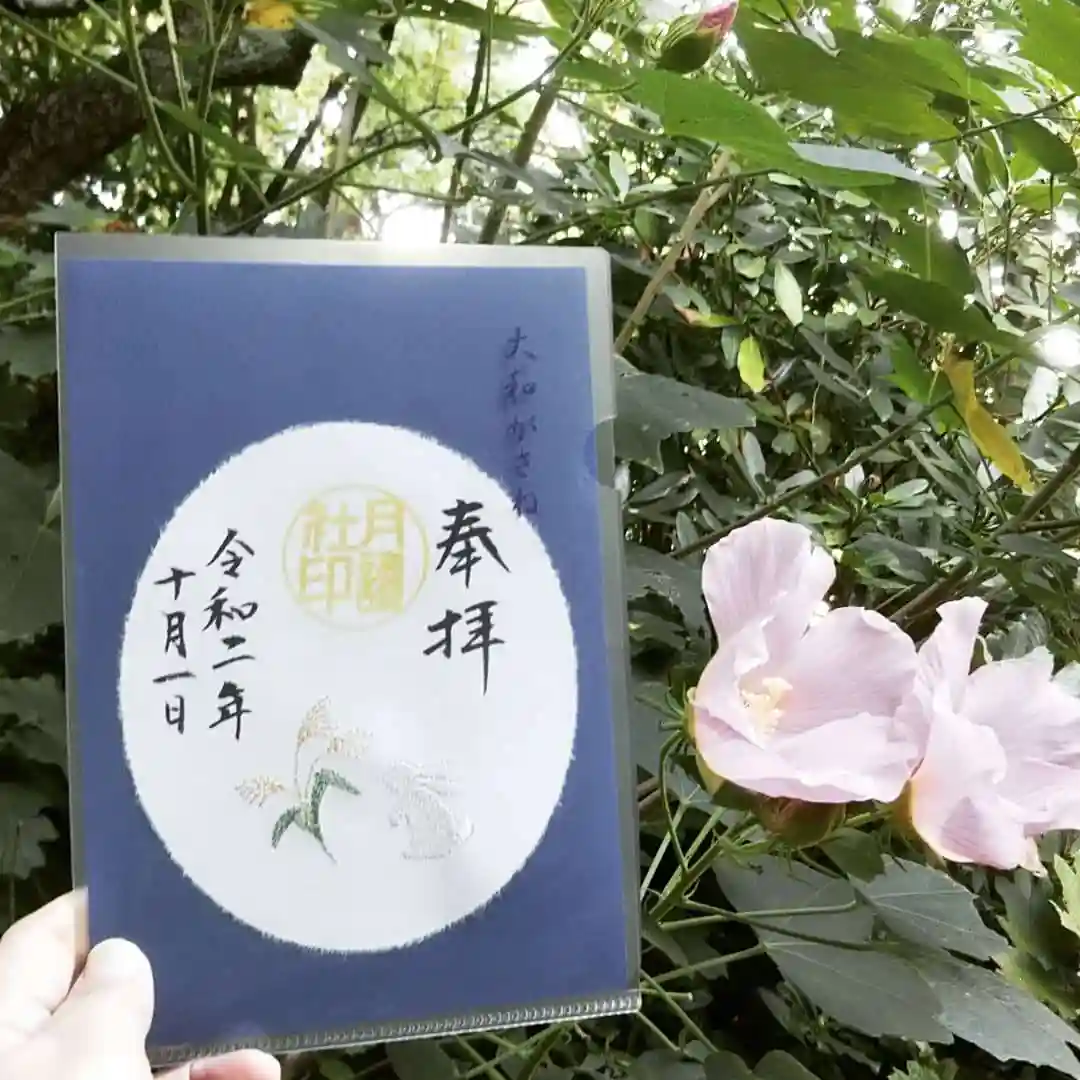 大和がさね
奉拝
月
社印
令和二年
十月一日